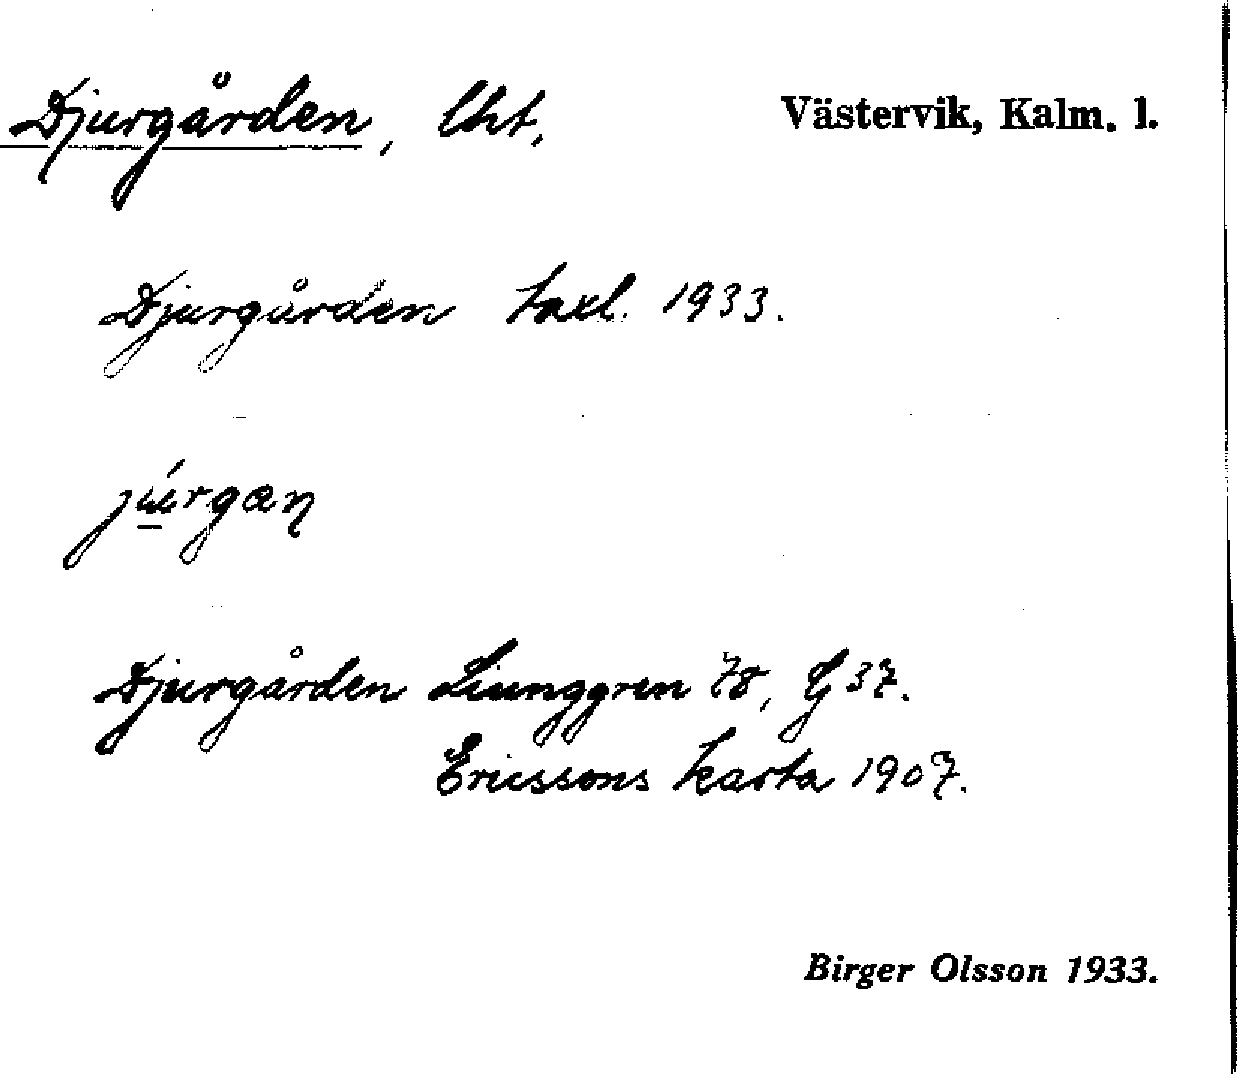 Djurgården, lht. Västervik, Kalm. l.
Djurgården taxl. 1933.
Djurgården Liunggren 78, G 37.
Ericssons karta 1907.
Birger Olsson 1933.